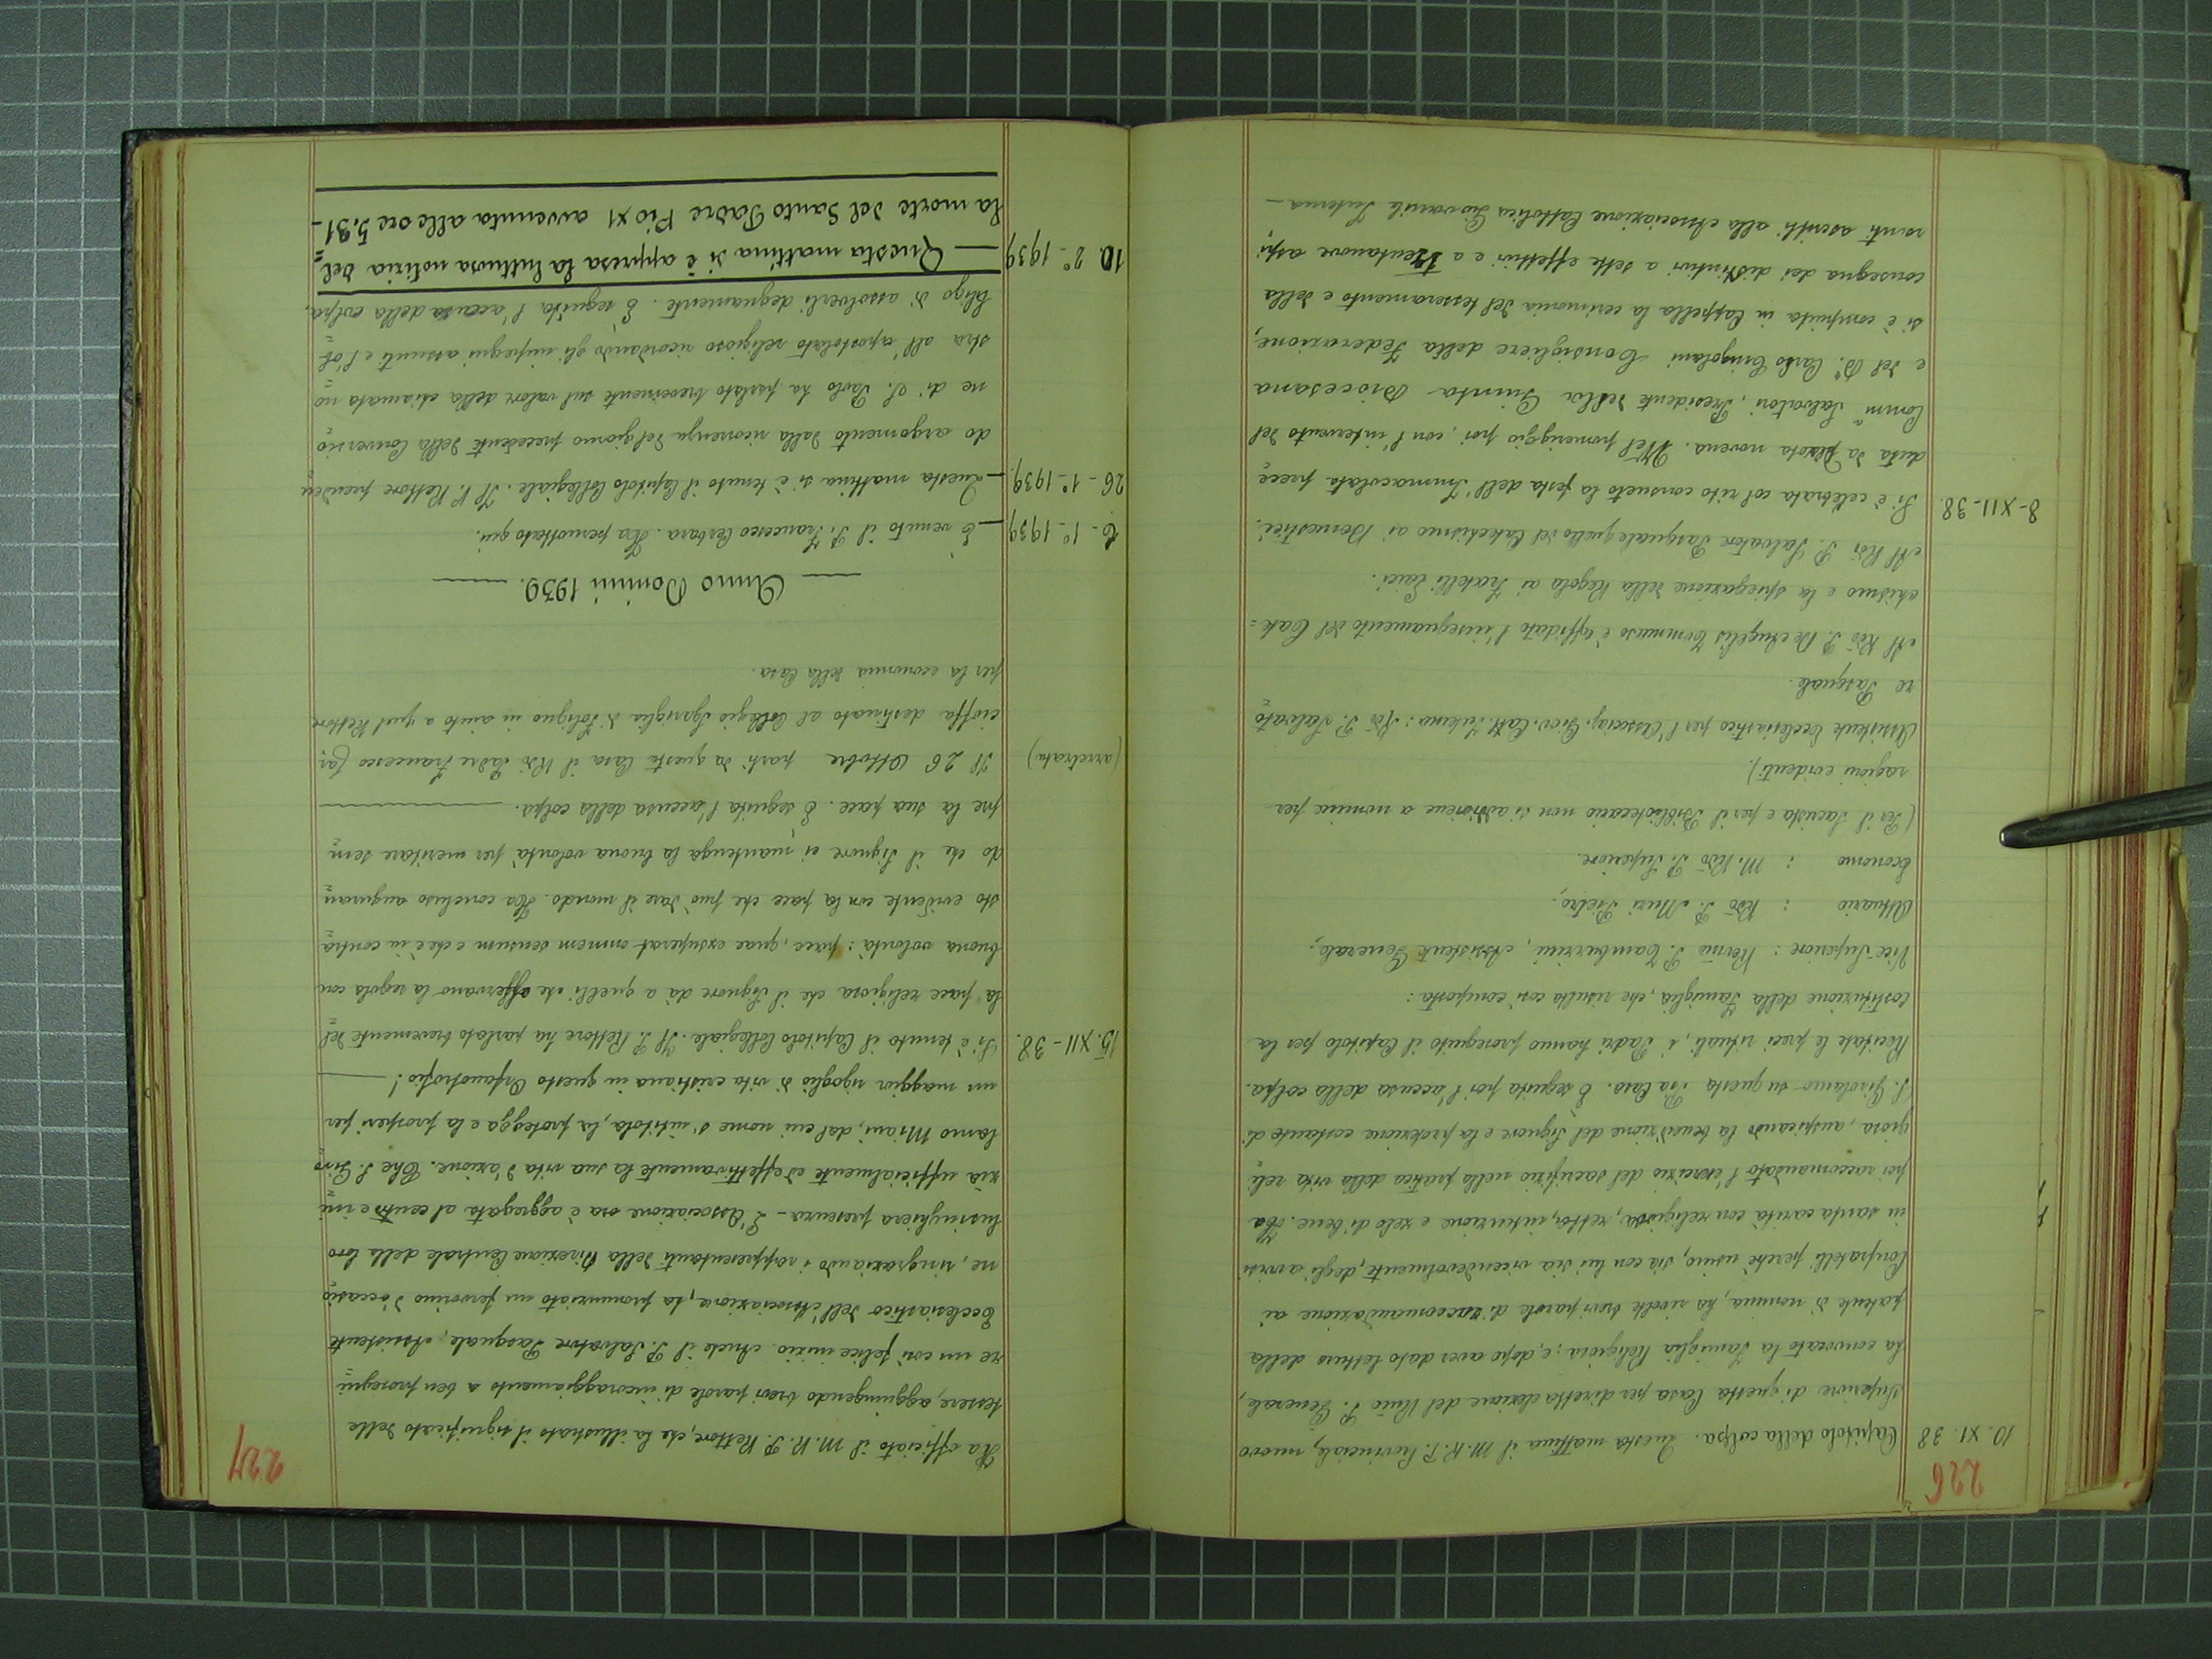 226
10. XI. 38 Capitolo della colpa. Questa mattina il M. R. P. Provinciale, nuovo
Superiore di questa Casa per diretta elezione del Rmo P. Generale,
ha convocato la Famiglia Religiosa; e, dopo aver dato lettura della
patente di nomina, ha rivolte brevi parole di raccomandazione ai
Confratelli perchè usino, sia con lui sia vicendevolmente, degli avvisi
in santa carità con religiosa, retta, intenzione e zelo di bene. Ha
poi raccomandato l'esercizio del sacrifizio nella pratica della vita reli=
giosa, auspicando la benedizione del Signore e la protezione costante di
S. Girolamo su questa Pia Casa. È seguita poi l'accusa della colpa.
Recitate le preci rituali, i Padri hanno proseguito il Capitolo per la
costituzione della Famiglia, che risulta così composta:
Vice-Superiore : Rev.mo P. Tamburrini, Assistente Generale.
Attuario : Rdo P. Muzi Pietro.
Economo : M. Rdo P. Superiore.
(Per il Sacrista e per il Bibliotecario non si addiviene a nomine per
ragioni evidenti).
Assistente Ecclesiastico per l'Associaz. Giov. Catt. Interna: Rdo P. Salvato=
re Pasquale.
Al Rdo P. De Angelis Tommaso è affidato l'insegnamento del Cate=
chismo e la spiegazione della Regola ai Fratelli Laici.
Al Rdo P. Salvatore Pasquale quello del Catechismo ai Domestici.
8-XII-38. Si è celebrata col rito consueto la festa dell'Immacolata prece=
duta da pia novena. Nel pomeriggio poi, con l'intervento del
Comm. Salvatori, Presidente della Giunta Diocesana
e del Dr. Carlo Cingolani Consigliere della Federazione,
si è compiuta in Cappella la cerimonia del tesseramento e della
consegna dei distintivi a sette effettivi e a trentanove aspi
ranti ascritti alla Associazione Cattolica Giovanile Interna —
227
Ha officiato il M. R. P. Rettore, che ha illustrato il significato delle
tessere, aggiungendo brevi parole di incoraggiamento a ben prosegui=
re un così felice inizio. Anche il P. Salvatore Pasquale, Assistente
Ecclesiastico dell'Associazione, ha pronunziato un fervorino d'occasio=
ne, ringraziando i rappresentanti della Direzione Centrale della loro
lusinghiera presenza - L'Associazione ora è aggregata al centro e ini=
zia ufficialmente ed effettivamente la sua vita d'azione. Che S. Giro=
lamo Miani, dal cui nome s'intitola, la protegga e la prosperi per
un maggior rigoglio di vita cristiana in questo Orfanotrofio! —
15. XII-38. Si è tenuto il Capitolo Collegiale. Il P. Rettore ha parlato brevemente del=
la pace religiosa che il Signore dà a quelli che osservano la regola con
buona volontà: pace, quae exsuperat omnem sensum e che è in contra=
sto evidente con la pace che può dare il mondo. Ha concluso auguran=
do che il Signore ci mantenga la buona volontà per meritare sem=
pre la sua pace. È seguita l'accusa della colpa. —
(arretrata) Il 26 Ottobre partì da questa Casa il Rdo Padre Francesco Car=
cioffa destinato al Collegio Sgariglia di Foligno in aiuto a quel Rettore
per la economia della Casa.
— Anno Domini 1939. —
6-1°-1939 — È venuto il P. Francesco Cerbara. Ha pernottato qui.
26-1°-1939. — Questa mattina si è tenuto il Capitolo Collegiale. Il P. Rettore prenden=
do argomento dalla ricorrenza del giorno precedente della Conversio=
ne di S. Paolo ha parlato brevemente sul valore della chiamata no=
stra all'apostolato religioso ricordando gli impegni assunti e l'ob=
bligo di assolverli degnamente. È seguita l'accusa della colpa.
10-2°-1939 — Questa mattina si è appresa la luttuosa notizia del=
la morte del Santo Padre Pio XI avvenuta alle ore 5,31-